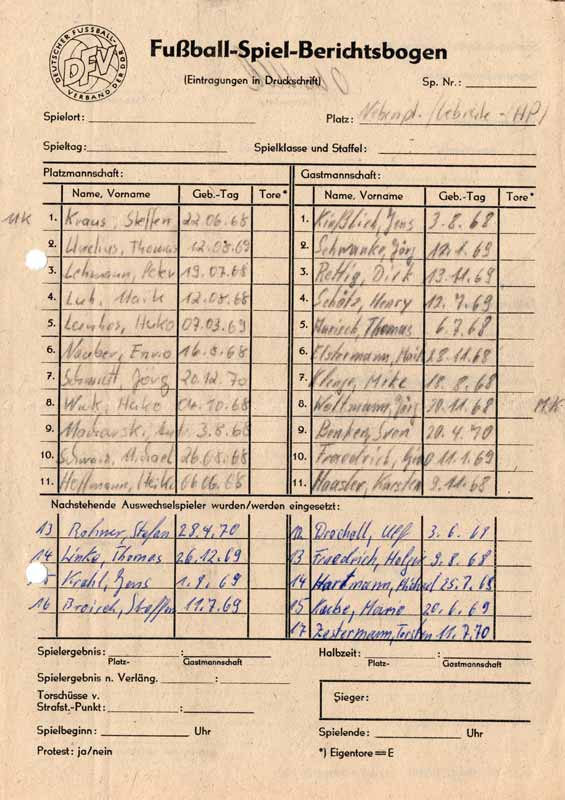 DEUTSCHER FUSSBALL-VERBAND DER DDR
DFV
Fußball-Spiel-Berichtsbogen
(Eintragungen in Druckschrift)
Sp. Nr.:
Spielort:
Platz: Nebenpl.
Spieltag:
Spielklasse und Staffel:
Platzmannschaft:
Gastmannschaft:
Name, Vorname Geb.-Tag Tore*
Name, Vorname Geb.-Tag Tore*
MK 1. Kraus, Steffen 22.06.68
1. Kießlich, Jens 3.8.68
2. Thomas 12.08.69
2. Schwanke, Jörg 12.1.69
3. Lehmann, Peter 19.07.68
3. Rettig, Dirk 13.11.69
4. Luh, Maik 12.08.68
4. Schätz, Henry 12.7.69
5. Heiko 07.03.69
5. Thomas 6.7.68
6. Nauber, Enrico 16.8.68
6. Elstermann, Maik 18.11.68
7. Schmidt, Jörg 20.12.70
7. Klinge, Mike 18.8.68
8. Heiko 04.10.68
8. Woltmann, Jörg 20.11.68 M.K.
9. 3.8.68
9. Benken, Sven 20.4.70
10. Schwarz, Michael 26.08.68
10. Friedrich, 11.1.69
11. Hoffmann, Heiko 06.06.68
11. Haasler, Karsten 9.11.68
Nachstehende Auswechselspieler wurden/werden eingesetzt:
13 Rohmer, Stefan 28.4.70
12 Drochall, Ulf 3.6.68
14 Linke, Thomas 26.12.69
13 Friedrich, Holger 9.8.68
5 Krahl, Jens 1.8.69
14 Hartmann, Michael 25.7.68
16 Broisch, Steffen 11.7.69
15 Mario 20.6.69
17 Zestermann, Torsten 11.7.70
Spielergebnis: :
Halbzeit: :
Platz- Gastmannschaft
Platz- Gastmannschaft
Spielergebnis n. Verläng. :
Torschüsse v.
Strafst.-Punkt: :
Sieger:
Spielbeginn: Uhr
Spielende: Uhr
Protest: ja/nein
*) Eigentore = E